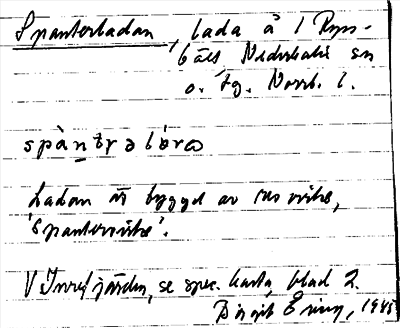 Spanterladan, lada å 1 Ryss-
bält, Nederkalix sn
o. tg. Norrb. l.
spàntrəlàra
Ladan är byggd av
'spantervirke'.
V Innefjärden, se spec. karta, blad 2.
Birgit 1945